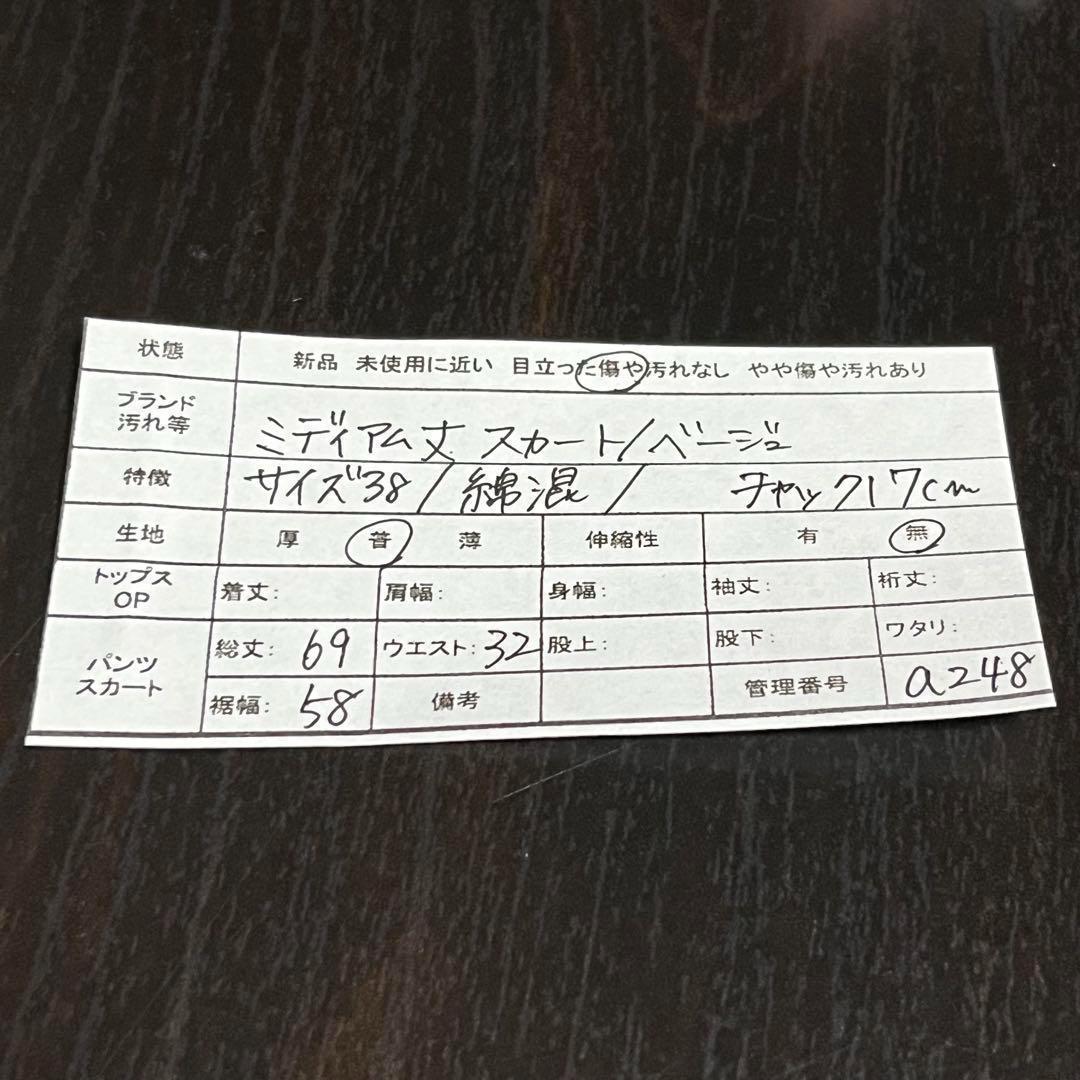 状態 新品 未使用に近い 目立った傷や汚れなし やや傷や汚れあり
ブランド
汚れ等 ミディアム丈 スカート/ベージュ
特徴 サイズ38/綿混/ チャック17cm
生地 厚 普 薄 伸縮性 有 無
トップス
OP 着丈: 肩幅: 身幅: 袖丈: 裄丈:
パンツ
スカート 総丈: 69 ウエスト: 32 股上: 股下: ワタリ:
裾幅: 58 備考 管理番号 a248